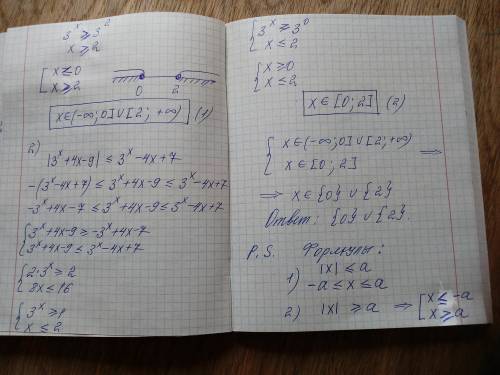 3^x ≥ 3^2
x ≥ 2
[ x ≤ 0
[ x ≥ 2
0 2
x∈(-∞; 0] ∪ [2; +∞) (1)
2)
|3^x+4x-9| ≤ 3^x-4x+7
-(3^x-4x+7) ≤ 3^x+4x-9 ≤ 3^x-4x+7
-3^x+4x-7 ≤ 3^x+4x-9 ≤ 3^x-4x+7
{ 3^x+4x-9 ≥ -3^x+4x-7
{ 3^x+4x-9 ≤ 3^x-4x+7
{ 2·3^x ≥ 2
{ 8x ≤ 16
{ 3^x ≥ 1
{ x ≤ 2
{ 3^x ≥ 3^0
{ x ≤ 2
{ x ≥ 0
{ x ≤ 2
x ∈ [0; 2] (2)
{ x∈(-∞; 0] ∪ [2; +∞)
{ x ∈ [0; 2] ⟹
⟹ x ∈ {0} ∪ {2}
Ответ: {0} ∪ {2}.
P.S. Формулы:
1) |x| ≤ a
-a ≤ x ≤ a
2) |x| ≥ a ⟹ [ x ≤ -a
[ x ≥ a